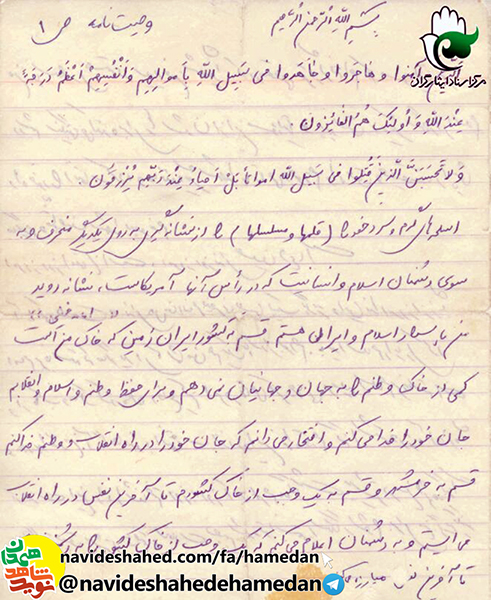 بسم الله الرحمن الرحیم
وصیت نامه ص ۱
مرکز اسناد ایثارگران
آمنوا و هاجروا و جاهدوا فی سبیل الله باموالهم وانفسهم اعظم درجة
عند الله و اولئک هم الفائزون.
ولا تحسبن الذین قتلوا فی سبیل الله امواتا بل احیاء عند ربهم یرزقون.
اسلحه‌های گرم و سرد خود را (قلمها و مسلسلها) را از نشانه‌گیری به روی یکدیگر منحرف و به
سوی دشمنان اسلام و انسانیت که در رأس آنها آمریکاست، نشانه روید
"امام خمینی"
من پاسدار اسلام و ایرانی هستم قسم به کشور ایران زمین که خاک من است
کمی از خاک وطنم را به جهان و جهانیان نمی دهم و برای حفظ وطنم و اسلام و انقلابم
جان خود را فدا می کنم و افتخار می دانم که جان خود را در راه انقلاب و وطنم فدا کنم
قسم به خرمشهر و قسم به یک وجب از خاک کشورم تا آخرین نفس در راه انقلاب
می ایستم و به دشمنان اعلام می کنم که یک وجب از خاک کشورم را به
تا آخرین مبارزه
نوید شاهد همدان
navideshahed.com/fa/hamedan
@navideshahedehamedan